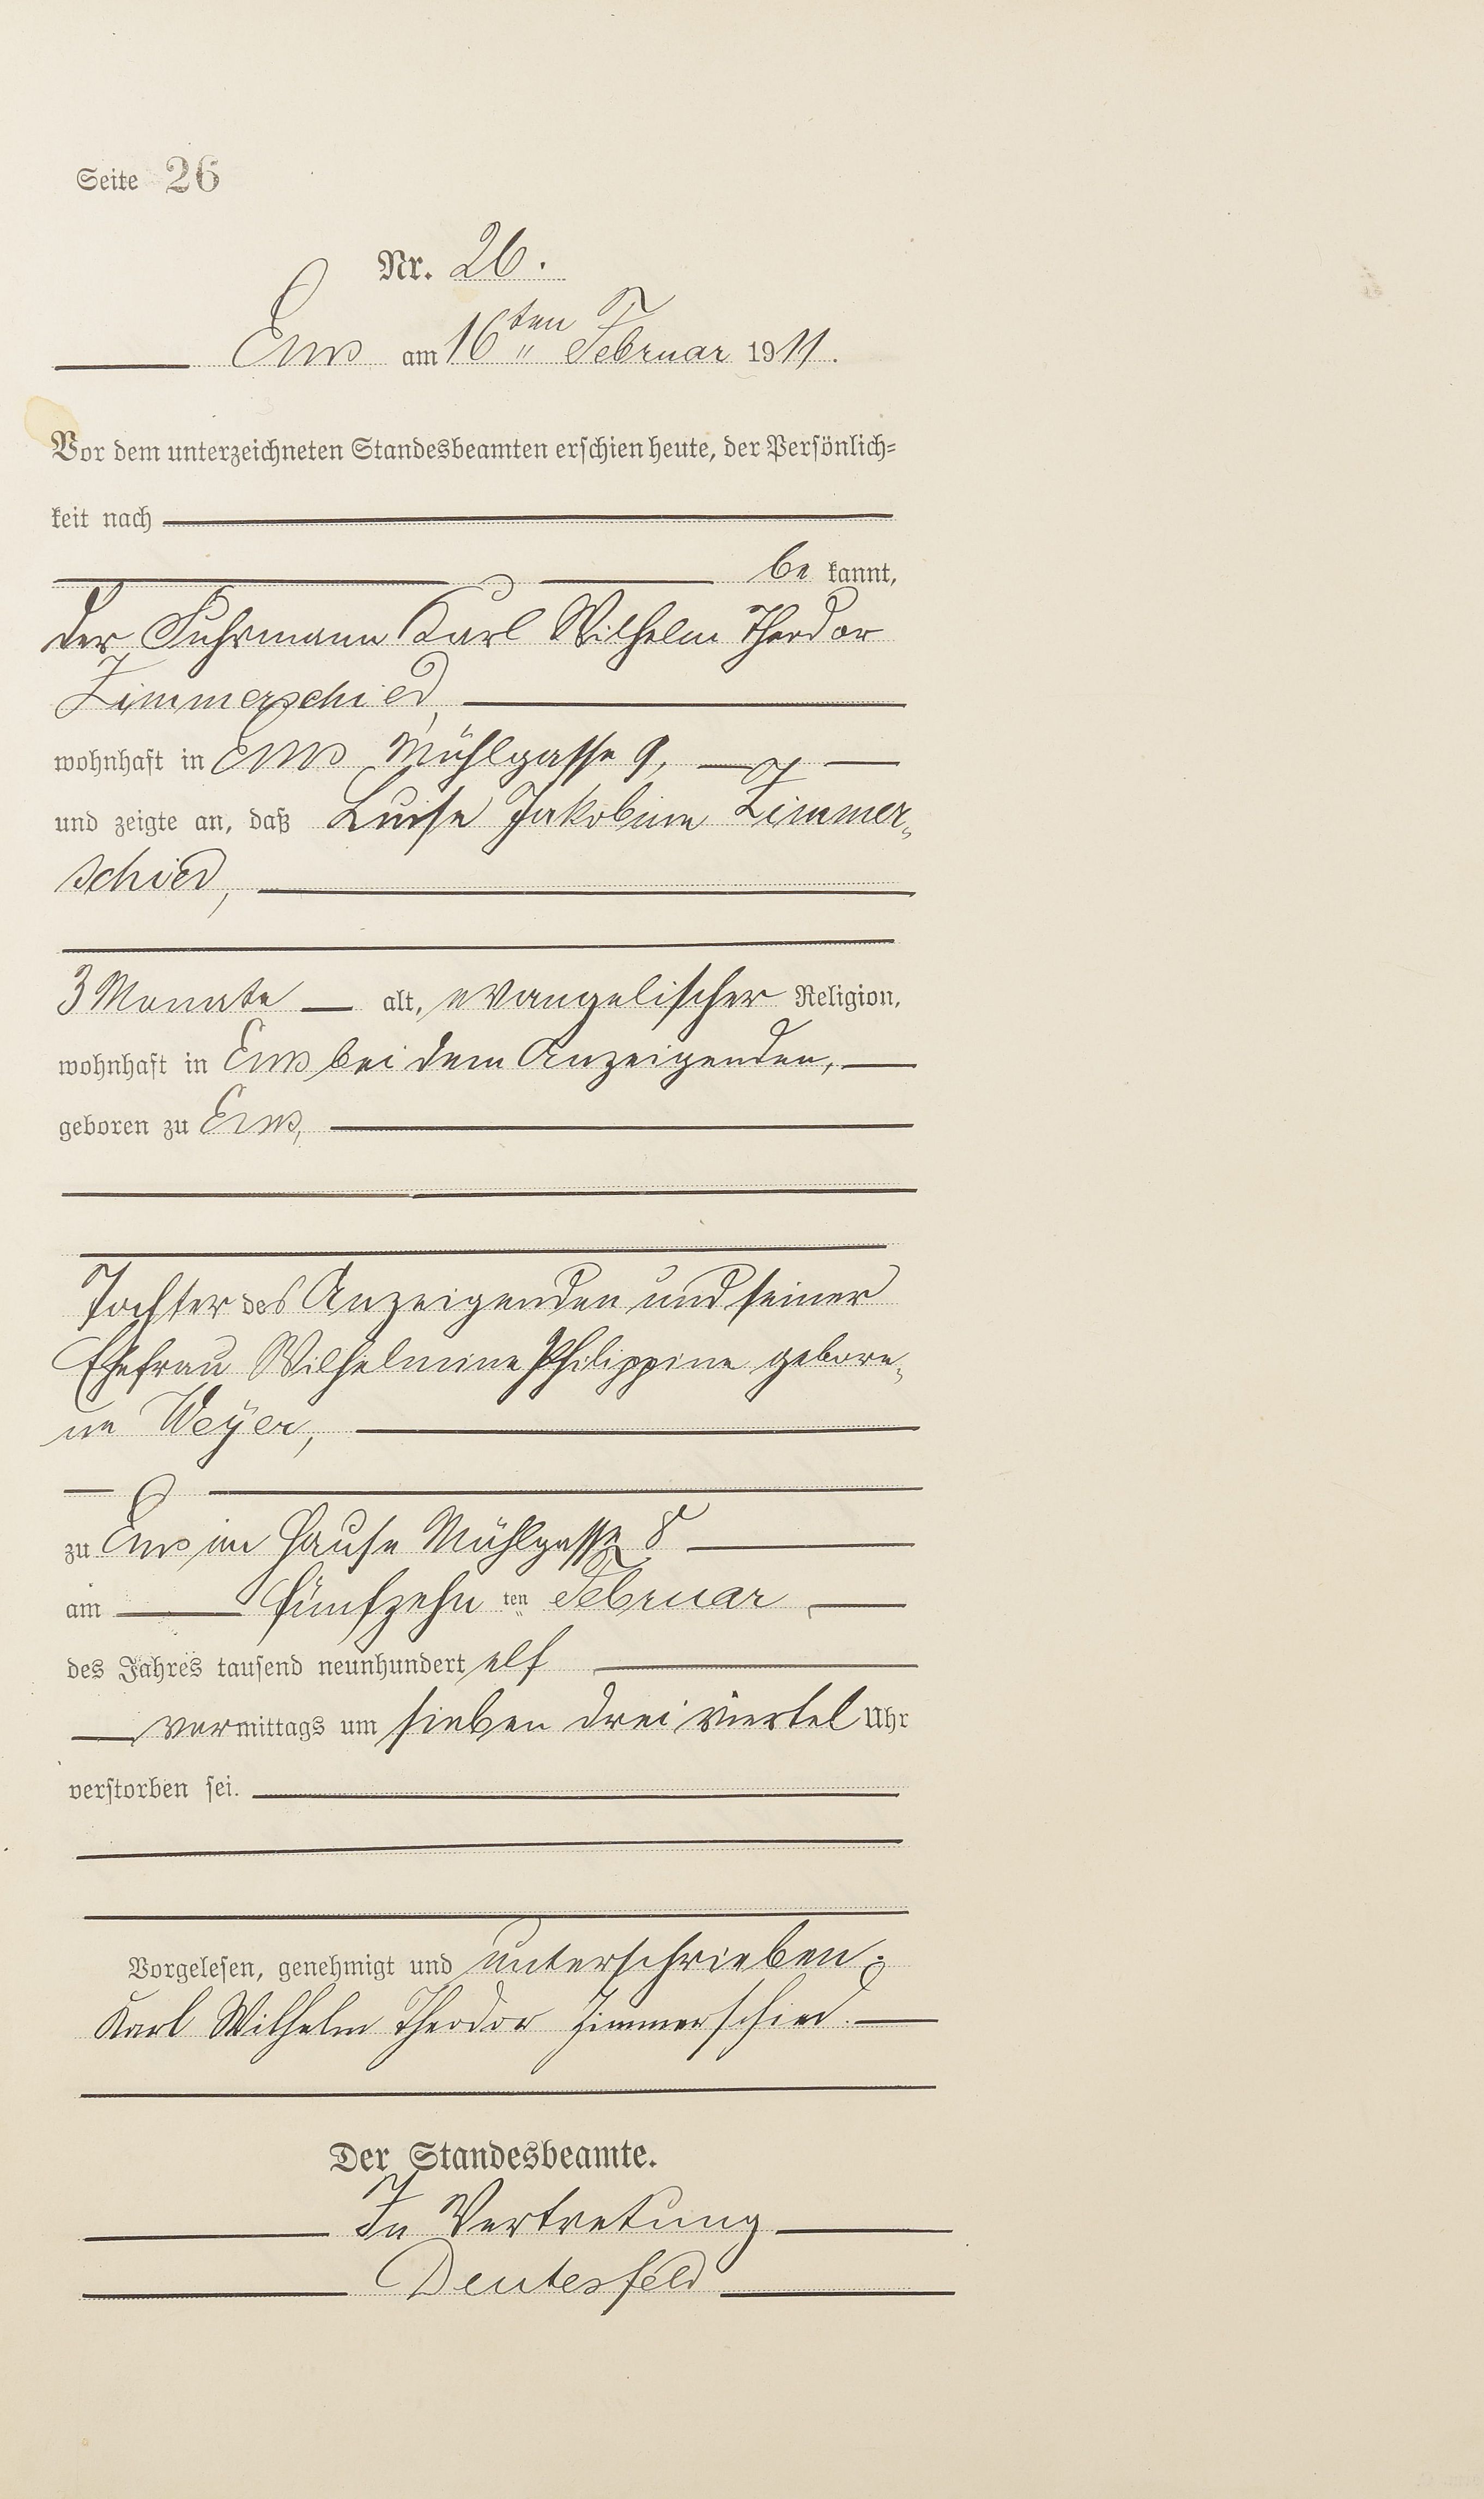 Seite 26
Nr. 26.
Ems am 16ten Februar 1911.
Vor dem unterzeichneten Standesbeamten erschien heute, der Persönlich=
keit nach
be kannt,
der Fuhrmann Karl Wilhelm Theodor
Zimmerschied,
wohnhaft in Ems Mühlgasse 9,
und zeigte an, daß Luise Jakobine Zimmer=
schied,
3 Monate alt, evangelischer Religion,
wohnhaft in Ems bei dem Anzeigenden,
geboren zu Ems,
Tochter des Anzeigenden und seiner
Ehefrau Wilhelmine Philippine gebore=
ne Weyer,
zu Ems im Hause Mühlgasse 8
am fünfzehn ten Februar
des Jahres tausend neunhundert elf
vormittags um sieben drei viertel Uhr
verstorben sei.
Vorgelesen, genehmigt und unterschrieben:
Karl Wilhelm Theodor Zimmerschied.
Der Standesbeamte.
In Vertretung
Deutesfeld